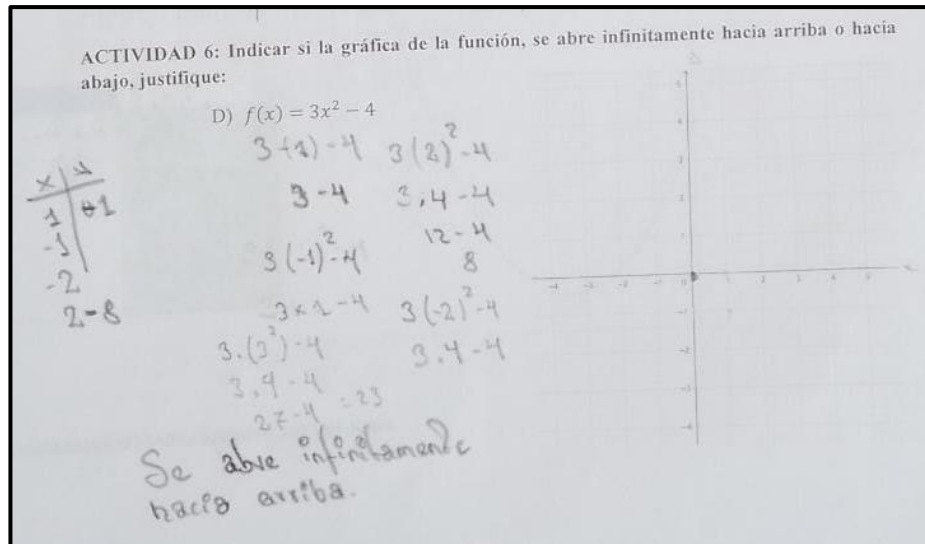 ACTIVIDAD 6: Indicar si la gráfica de la función, se abre infinitamente hacia arriba o hacia
abajo, justifique:
D) f(x) = 3x² − 4
x | y
1 | 1
-1
-2
2 - 8
3 (1) - 4
3 - 4
3 (-1)² - 4
3 × 1 - 4
3 . (3²) - 4
3 . 9 - 4
27 - 4 = 23
3 (2)² - 4
3 . 4 - 4
12 - 4
8
3 (-2)² - 4
3 . 4 - 4
Se abre infinitamente
hacia arriba.